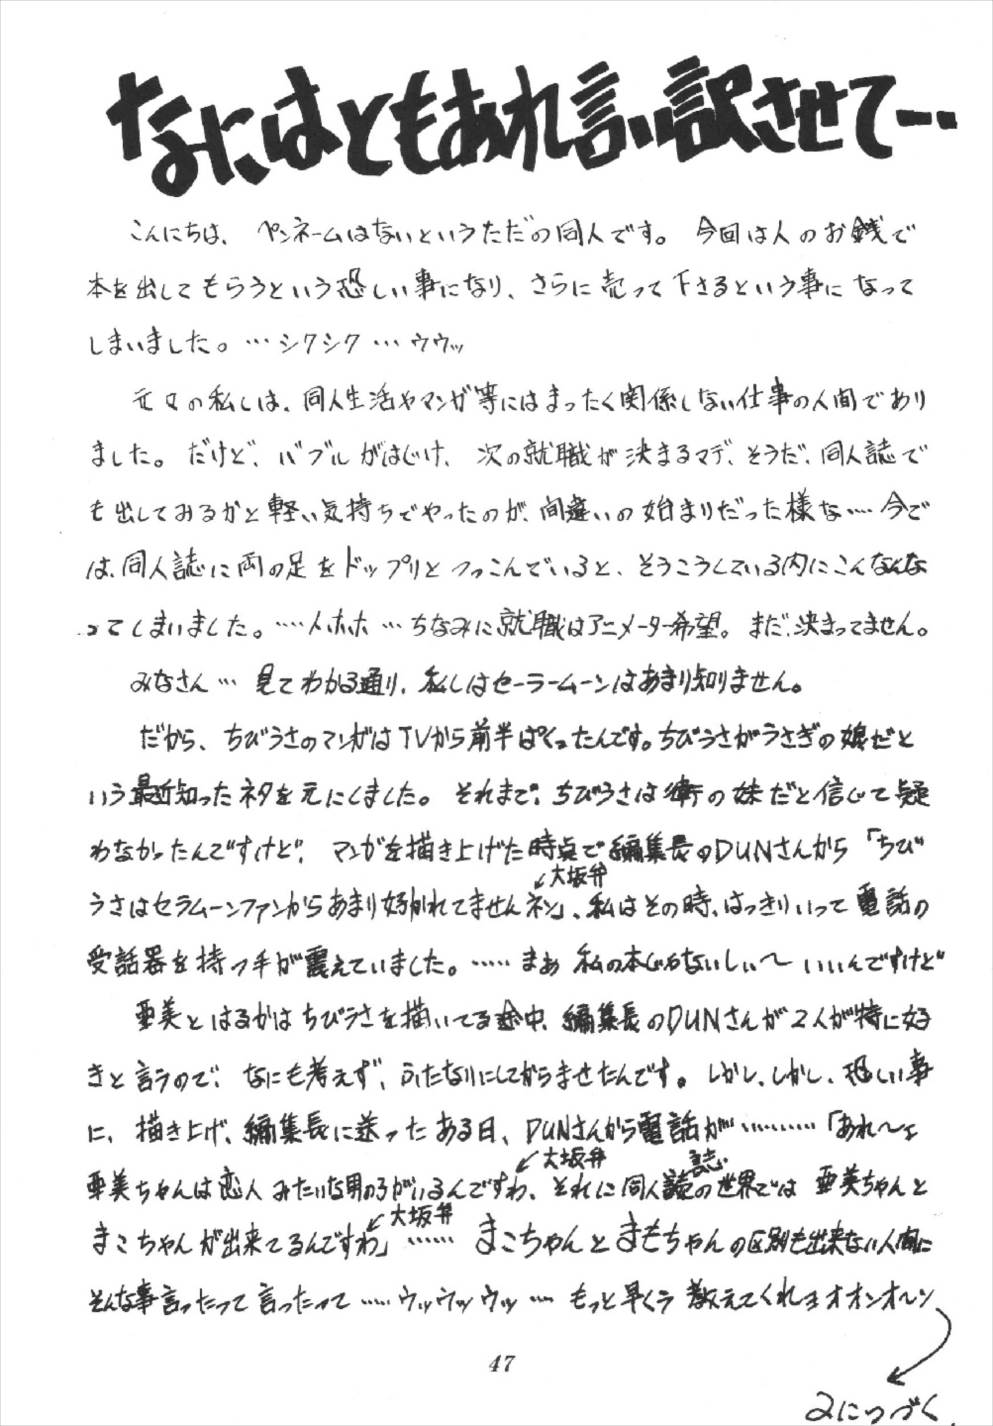 なにはともあれ言い訳させて…
こんにちは、ペンネームはないというただの同人です。今回は人のお銭で
本を出してもらうという恐しい事になり、さらに売って下さるという事になって
しまいました。…シクシク…ウウッ
元々の私しは、同人生活やマンガ等にはまったく関係しない仕事の人間であり
ました。だけど、バブルがはじけ、次の就職が決まるマデ、そうだ、同人誌で
も出してみるかと軽い気持ちでやったのが、間違いの始まりだった様な…今で
は、同人誌に両の足をドップリとつっこんでいると、そうこうしている内にこんなんな
ってしまいました。……ホホ…ちなみに就職はアニメーター希望。まだ、決まってません。
みなさん…見てわかる通り、私しはセーラームーンはあまり知りません。
だから、ちびうさのマンガはTVから前半ぱくったんです。ちびうさがうさぎの娘だと
いう最近知ったネタを元にしました。それまで、ちびうさは衛の妹だと信じて疑
わなかったんですけど、マンガを描き上げた時点で編集長のDUNさんから「ちび
大坂弁
うさはセラムーンファンからあまり好かれてませんネン」、私はその時、はっきりいって電話の
受話器を持つ手が震えていました。……まあ私の本じゃないしぃ〜いいんですけど
亜美とはるかはちびうさを描いてる途中、編集長のDUNさんが2人が特に好
きと言うので、なにも考えず、ふたなりにしてからませたんです。しかし、しかし、恐しい事
に、描き上げ、編集長に送ったある日、DUNさんから電話が…………「あれ〜ェ
大坂弁
誌
亜美ちゃんは恋人みたいな男の子がいるんですわ、それに同人の世界では亜美ちゃんと
大坂弁
まこちゃんが出来てるんですわ」……まこちゃんとまもちゃんの区別も出来ない人間に
そんな事言ったって言ったって……ウッウッウッ…もっと早くう教えてくれョオオンオ〜ン
47
2につづく